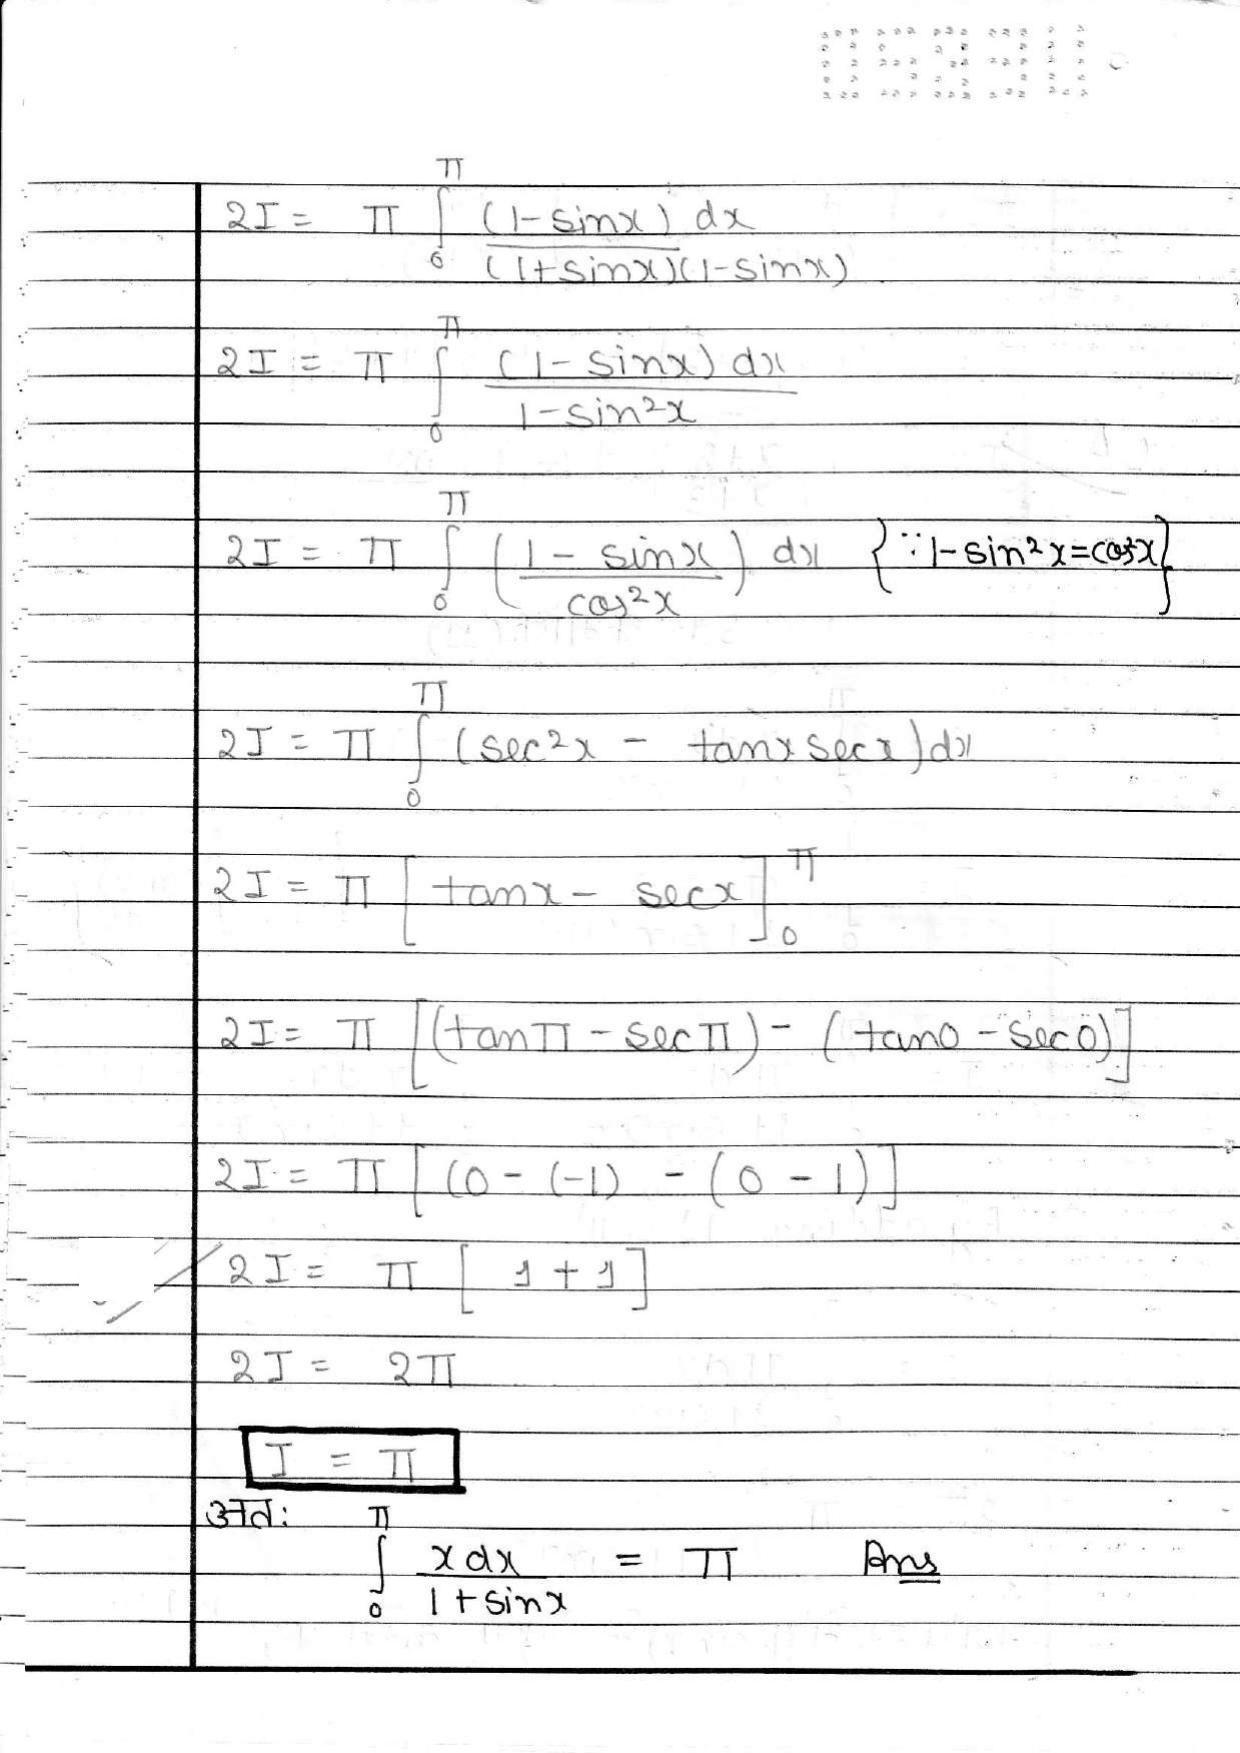 2I = π ∫₀^π (1-sinx) dx / (1+sinx)(1-sinx)
2I = π ∫₀^π (1-sinx) dx / 1-sin²x
2I = π ∫₀^π (1-sinx / cos²x) dx {∵ 1-sin²x=cos²x}
2I = π ∫₀^π (sec²x - tanx secx) dx
2I = π [tanx - secx]₀^π
2I = π [(tanπ - secπ) - (tan0 - sec0)]
2I = π [(0 - (-1) - (0 - 1)]
2I = π [1 + 1]
2I = 2π
I = π
अतः
∫₀^π x dx / 1+sinx = π Ans